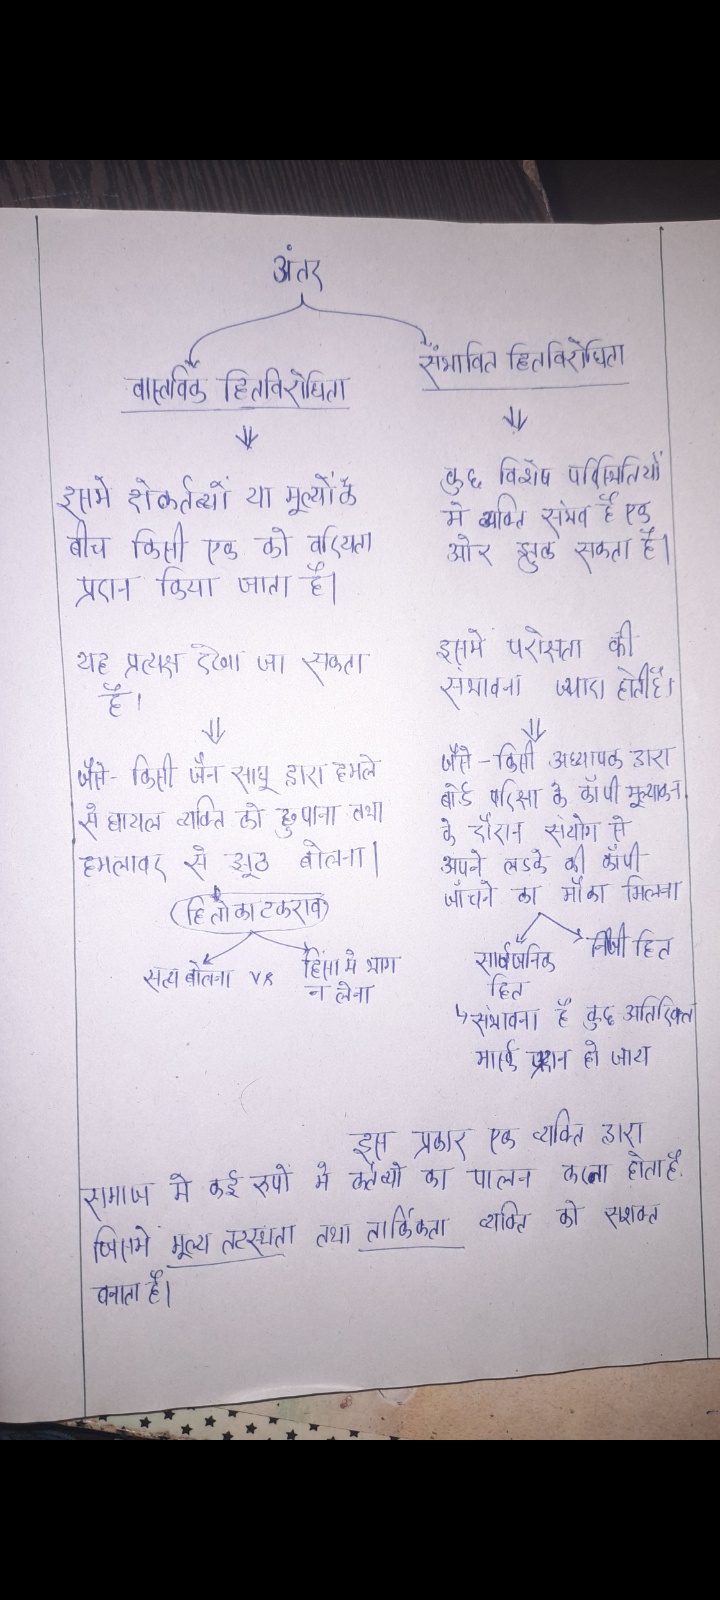 अंतर
वास्तविक हितविरोधिता
इसमे दो कर्तव्यों या मूल्यों के
बीच किसी एक को वरियता
प्रदान किया जाता है।
यह प्रत्यक्ष देखा जा सकता
है।
जैसे- किसी जैन साधू द्वारा हमले
से घायल व्यक्ति को छुपाना तथा
हमलावर से झूठ बोलना।
(हितो का टकराव)
सत्य बोलना vs हिंसा मे भाग
न लेना
संभावित हितविरोधिता
कुछ विशेष परिस्थितियों
मे व्यक्ति संभव है एक
ओर झुक सकता है।
इसमें परोक्षता की
संभावना ज्यादा होती है।
जैसे - किसी अध्यापक द्वारा
बोर्ड परिक्षा के कॉपी मूल्याकन
के दौरान संयोग से
अपने लडके की कॉपी
जाँचने का मौका मिलना
सार्वजनिक निजी हित
हित
↳ संभावना है कुछ अतिरिक्त
मार्क प्रदान हो जाय
इस प्रकार एक व्यक्ति द्वारा
समाज मे कई रुपों में कर्तव्यो का पालन करना होता है.
जिसमें मूल्य तटस्थता तथा तार्किकता व्यक्ति को सशक्त
बनाता है।